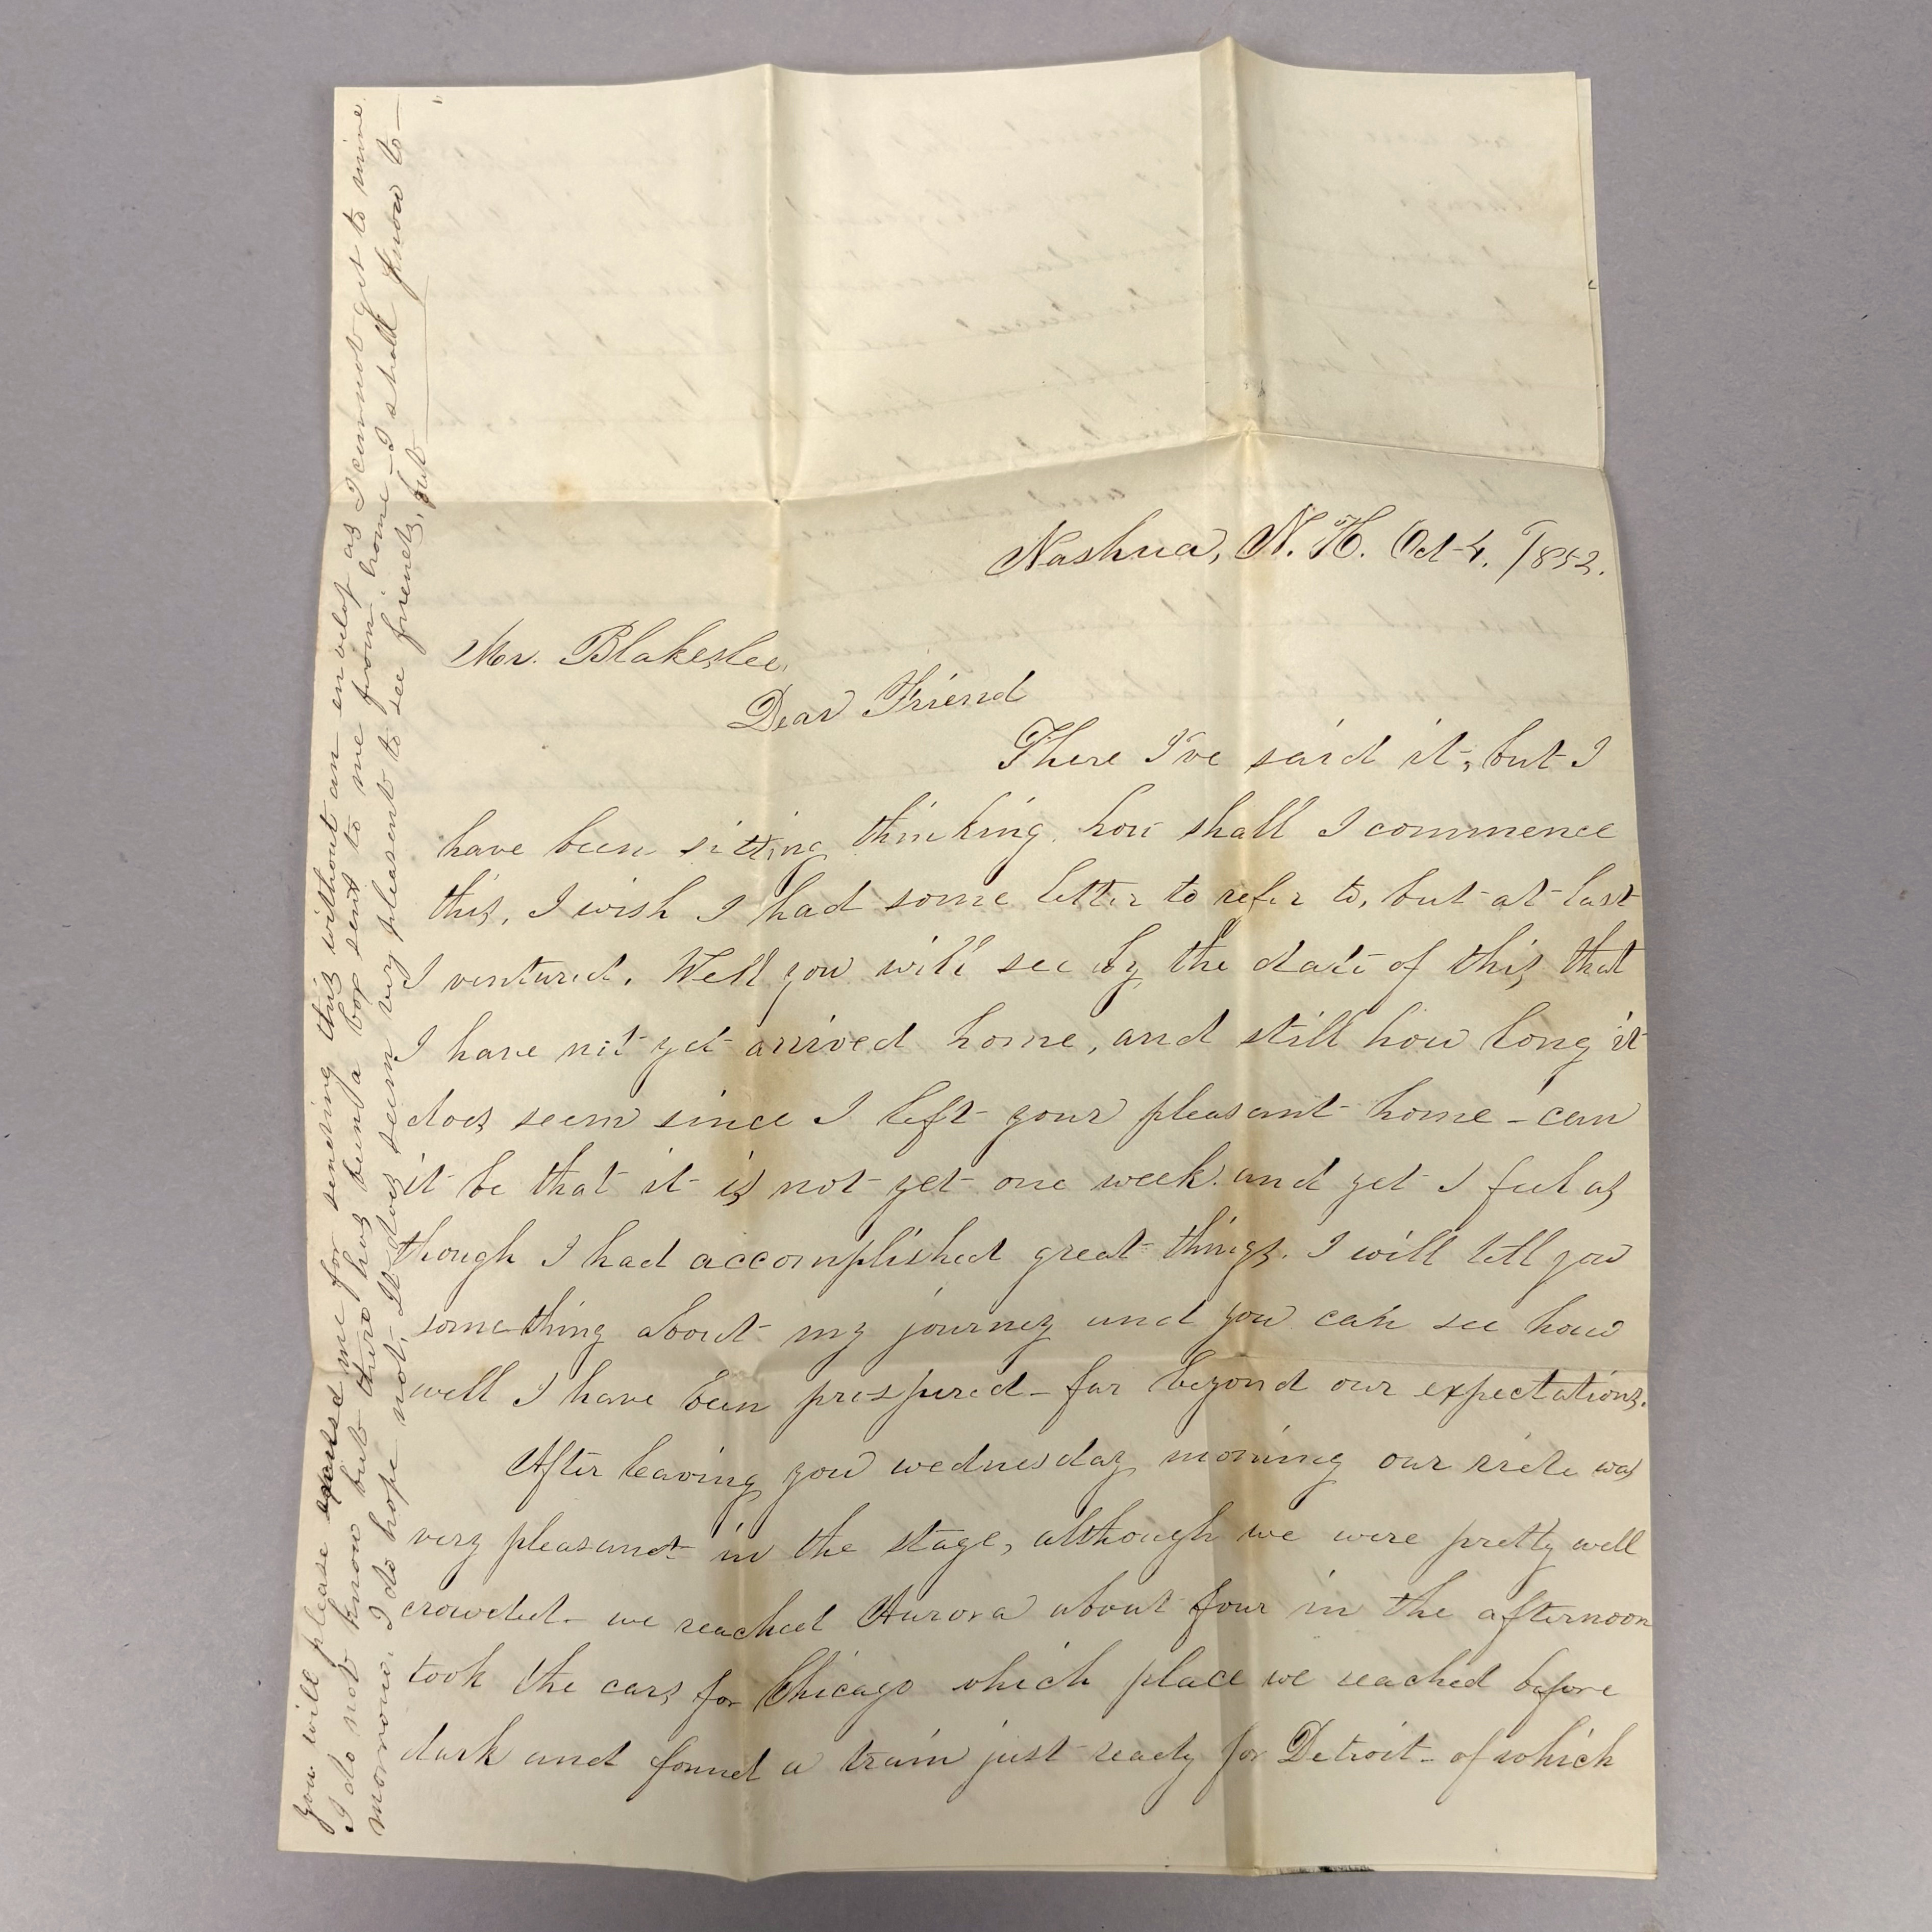 Nashua, N. H. Oct 4. 1852.
Mr. Blakeslee,
Dear Friend
There I've said it, but I
have been sitting thinking how shall I commence
this, I wish I had some letter to refer to, but at last
I ventured. Well you will see by the date of this, that
I have not yet arrived home, and still how long it
does seem since I left your pleasant home - can
it be that it is not yet one week and yet I feel as
though I had accomplished great things. I will tell you
something about my journey and you can see how
well I have been prospered - far beyond our expectations.
After leaving you wednesday morning our ride was
very pleasant in the stage, although we were pretty well
crowded - we reached Aurora about four in the afternoon
took the cars for Chicago which place we reached before
dark and found a train just ready for Detroit - of which
you will please excuse me for sending this without an envelop as I cannot get to mine
I do not know but there has been a box sent to me from home - I shall know to-
morrow. I do hope not, It does seem very pleasent to see friends, but